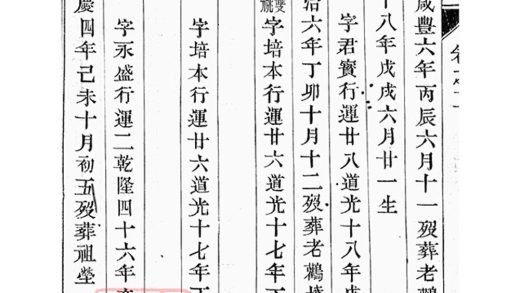 咸豐六年丙辰六月十一歿葬老鸛
十八年戊戌六月廿一生
字君實行運廿八道光十八年戊
治六年丁卯十月十二歿葬老鸛
字培本行運廿六道光十七年丁
字培本行運廿六道光十七年丁
字永盛行運二乾隆四十六年
慶四年己未十月初五歿葬祖塋